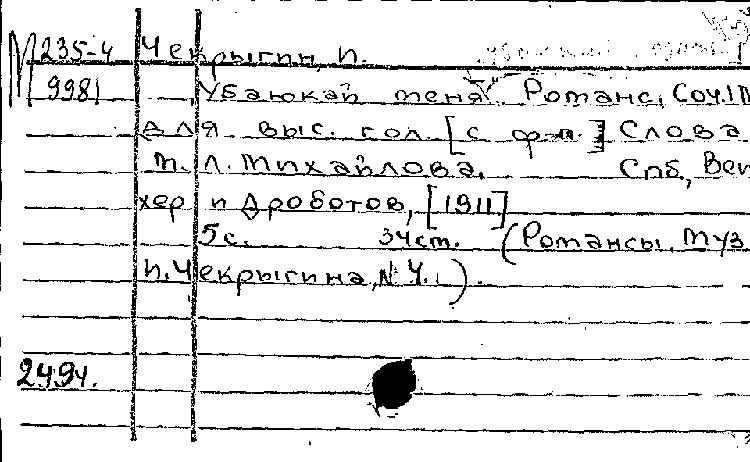 М 235-4 Чекрыгин, И.
9981 Убаюкай меня. Романс, Соч.
для выс. гол. [с ф-п.] Слова
М. Л. Михайлова. Спб., Бен
хер и Дроботов, [1911]
5с. 34см. (Романсы, муз
И. Чекрыгина, № 4.).
2494.